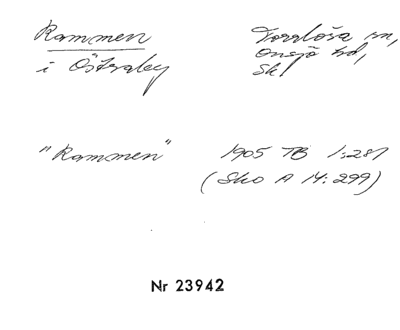 Rammen
i Östraby
Torrlösa sn,
Onsjö hd,
Sk.
"Rammen" 1905 TB 1:281
(Sko A 14:299)
Nr 23942